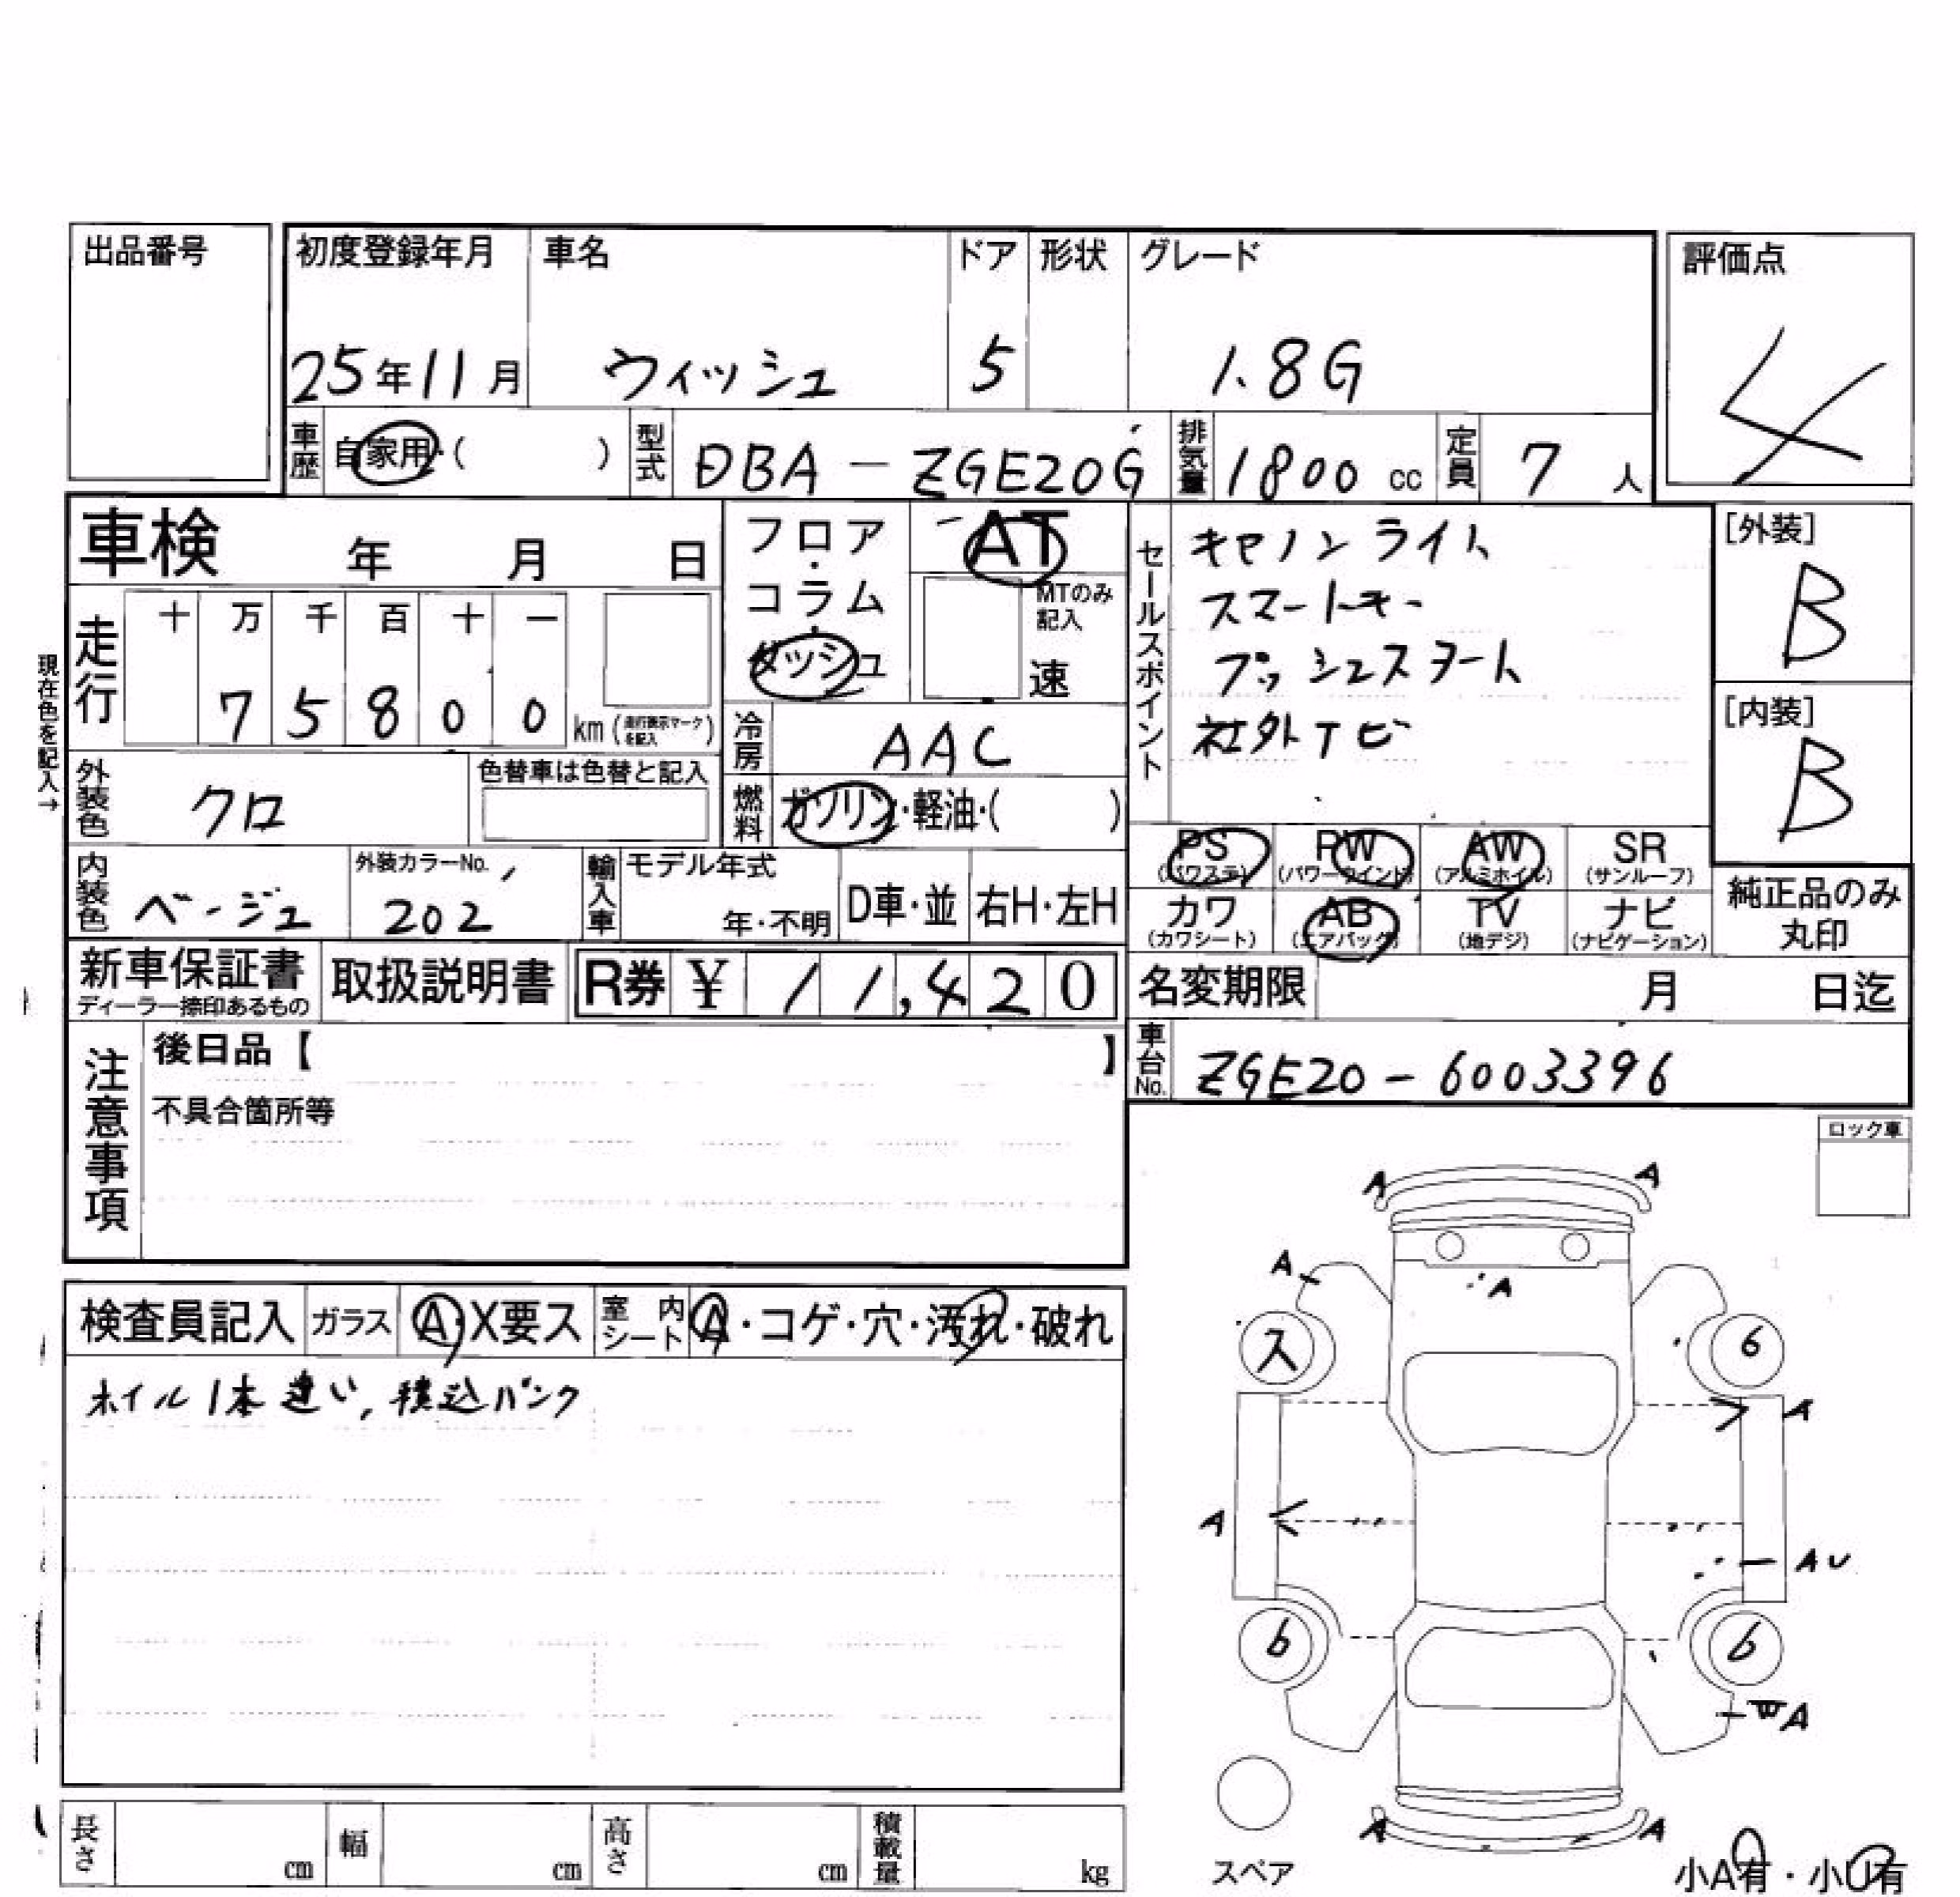 出品番号
初度登録年月 車名 ドア 形状 グレード
評価点
25年11月 ウィッシュ 5 1.8G
4
車歴 自家用・( ) 型式 DBA-ZGE20G 排気量 1800 cc 定員 7 人
車検 年 月 日
フロア・コラム・ダッシュ
AT
MTのみ記入
速
セールスポイント
キセノンライト
スマートキー
プッシュスタート
社外テレビ
[外装]
B
[内装]
B
現在色を記入→
走行 十 万 千 百 十 一
7 5 8 0 0 km (走行表示マークを記入)
冷房 AAC
外装色 クロ
色替車は色替と記入
燃料 ガソリン・軽油・( )
PS RW AW SR
(パワステ) (パワーウインド) (アルミホイル) (サンルーフ)
カワ AB TV ナビ
(カワシート) (エアバッグ) (地デジ) (ナビゲーション)
純正品のみ
丸印
内装色 ベージュ
外装カラーNo.
202
輸入車 モデル年式
年・不明 D車・並 右H・左H
新車保証書
ディーラー捺印あるもの
取扱説明書 R券 ¥ 11,420
名変期限 月 日迄
注意事項
後日品【 】
不具合箇所等
車台No. ZGE20-6003396
ロック車
A A
A A
検査員記入 ガラス A・X要ス 室内シート A・コゲ・穴・汚れ・破れ
ス 6
ホイル1本違い, 積込パンク
A
A
AU
6 6
WA
A A
長さ cm 幅 cm 高さ cm 積載量 kg
スペア
小A有・小U有